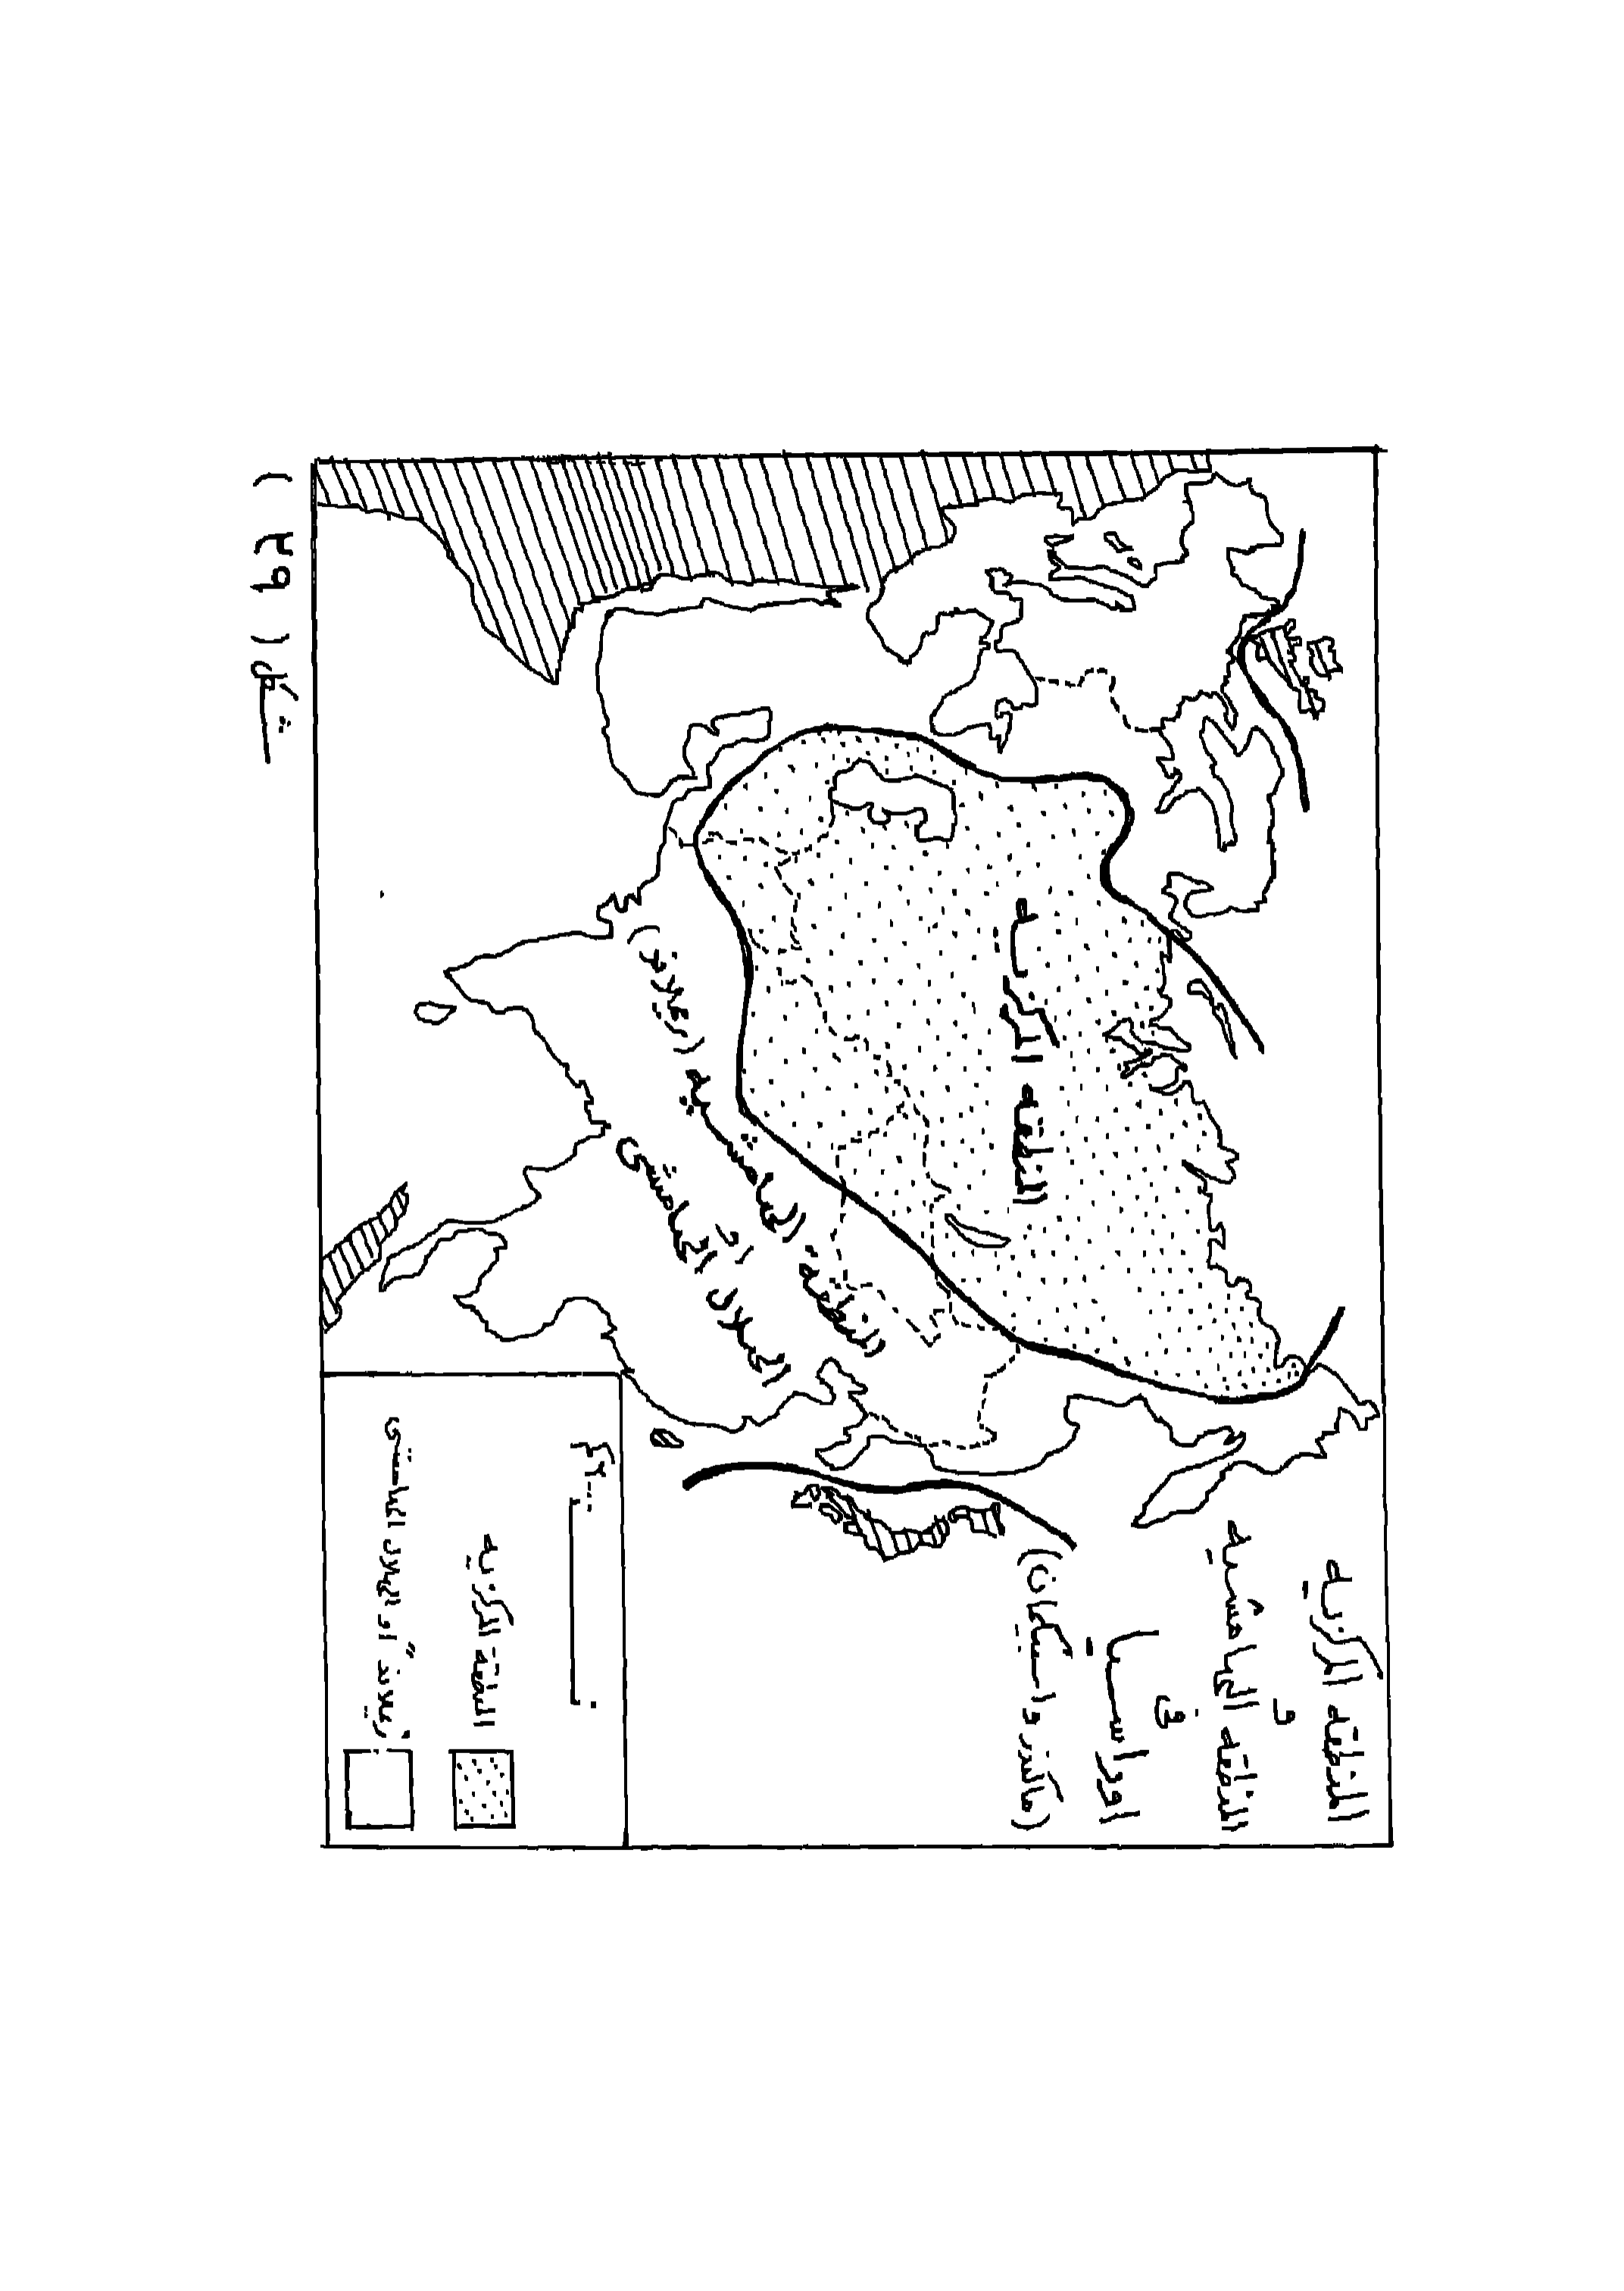 المنطقه المركزيه
و
المنطقه الهامشيه
فى
اوراسيا
(ماكندر و اسبيكمان)
المنطقه المركزيه
المنطقه الهامشيه (ريملاند)
او
الهلال الهامشى
المنطقه المركزيه
ريملاند "او الهلال الهامشى